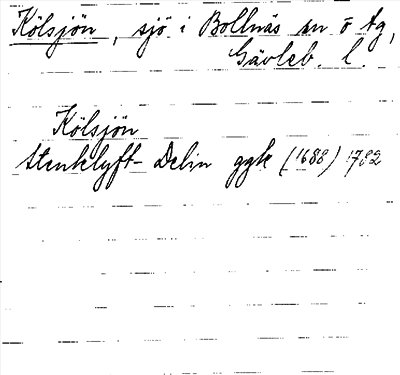 Kölsjön, sjö i Bollnäs sn o tg,
Gävleb. l.
Kölsjön
Stenklyft- Delin ggk (1688) 1782